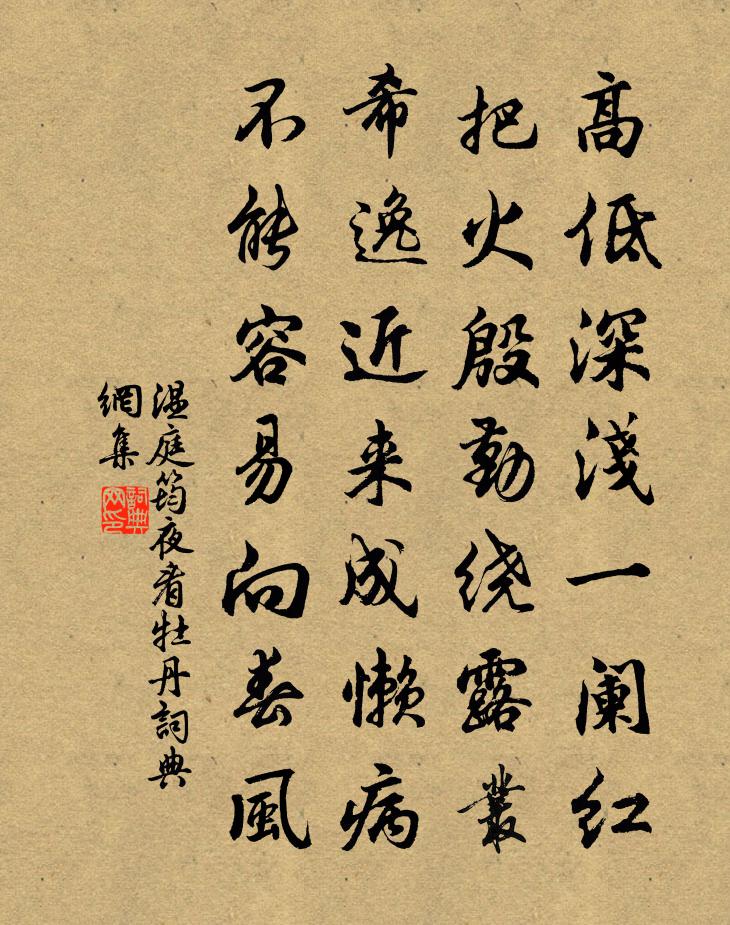 高低深淺一阑红
把火殷勤绕露叢
希逸近来成懒病
不能容易向春風
温庭筠夜看牡丹詞典
網集
詞典
网印